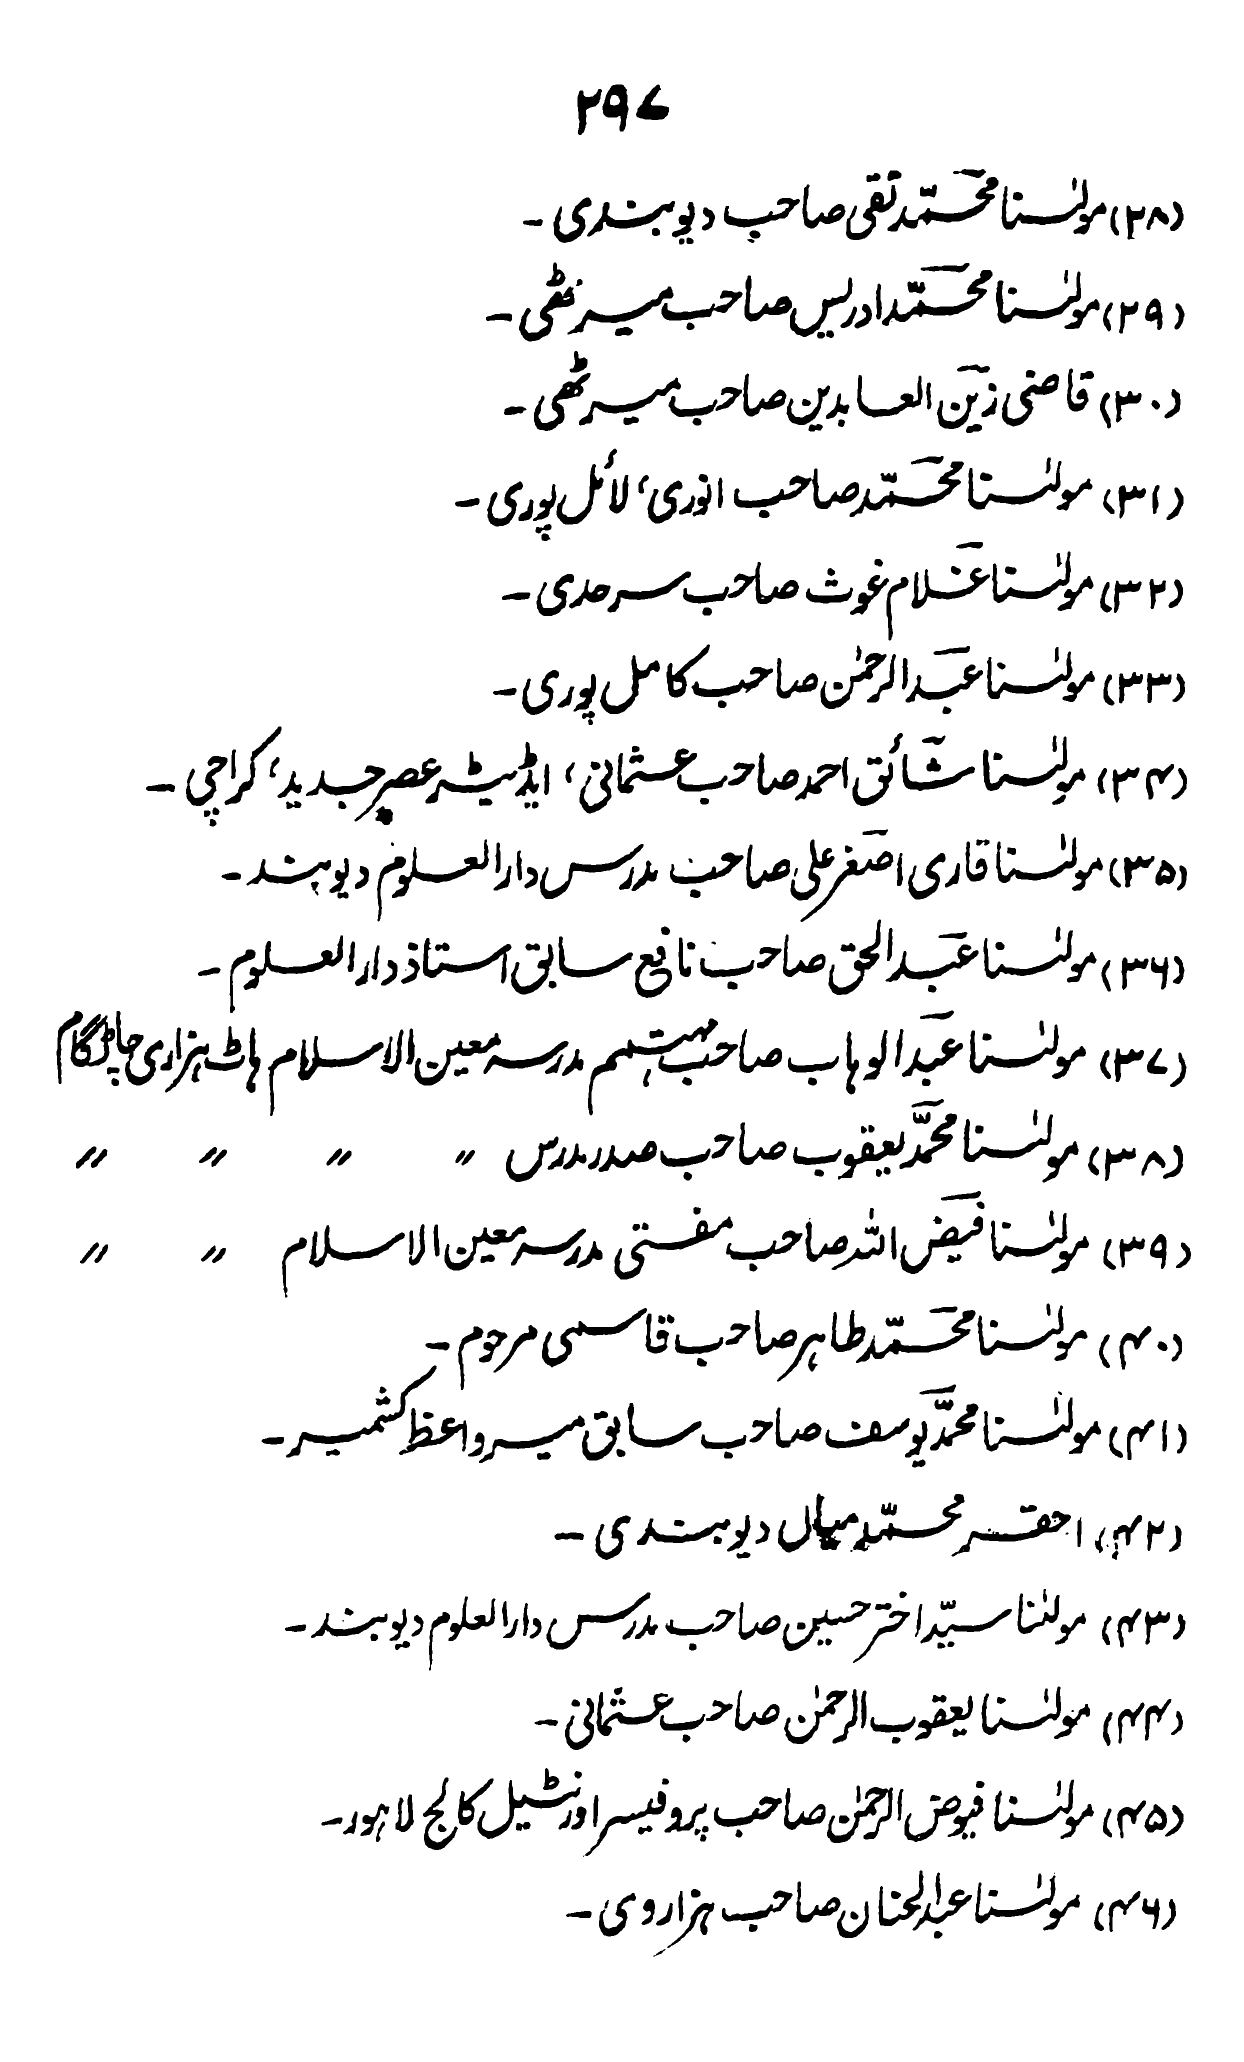 ۲۹۷
(۲۸) مولٰسنا محمّد تقی صاحب دیوبندی ۔
(۲۹) مولٰسنا محمّد ادریس صاحب میرٹھی ۔
(۳۰) قاضی زین العابدین صاحب میرٹھی ۔
(۳۱) مولٰسنا محمّد صاحب انوری، لائل پوری ۔
(۳۲) مولٰسنا غلام غوث صاحب سرحدی ۔
(۳۳) مولٰسنا عبدالرحمٰن صاحب کامل پوری ۔
(۳۴) مولٰسنا شائق احمد صاحب عثمانی، ایڈیٹر عصرِ جدید، کراچی ۔
(۳۵) مولٰسنا قاری اصغر علی صاحب مدرس دارالعلوم دیوبند ۔
(۳۶) مولٰسنا عبدالحق صاحب نافع سابق استاذ دارالعلوم ۔
(۳۷) مولٰسنا عبدالوہاب صاحب مہتمم مدرسہ معین الاسلام ہاٹ ہزاری چاٹگام
(۳۸) مولٰسنا محمّد یعقوب صاحب صدر مدرس 〃 〃 〃 〃
(۳۹) مولٰسنا فیض اللہ صاحب مفتی مدرسہ معین الاسلام 〃 〃
(۴۰) مولٰسنا محمّد طاہر صاحب قاسمی مرحوم ۔
(۴۱) مولٰسنا محمّد یوسف صاحب سابق میر واعظ کشمیر ۔
(۴۲) احقر محمّد میاں دیوبندی ۔
(۴۳) مولٰنا سیّد اختر حسین صاحب مدرس دارالعلوم دیوبند ۔
(۴۴) مولٰسنا یعقوب الرحمٰن صاحب عثمانی ۔
(۴۵) مولٰسنا فیوض الرحمٰن صاحب پروفیسر اورنٹیل کالج لاہور ۔
(۴۶) مولٰسنا عبدالحنان صاحب ہزاروی ۔